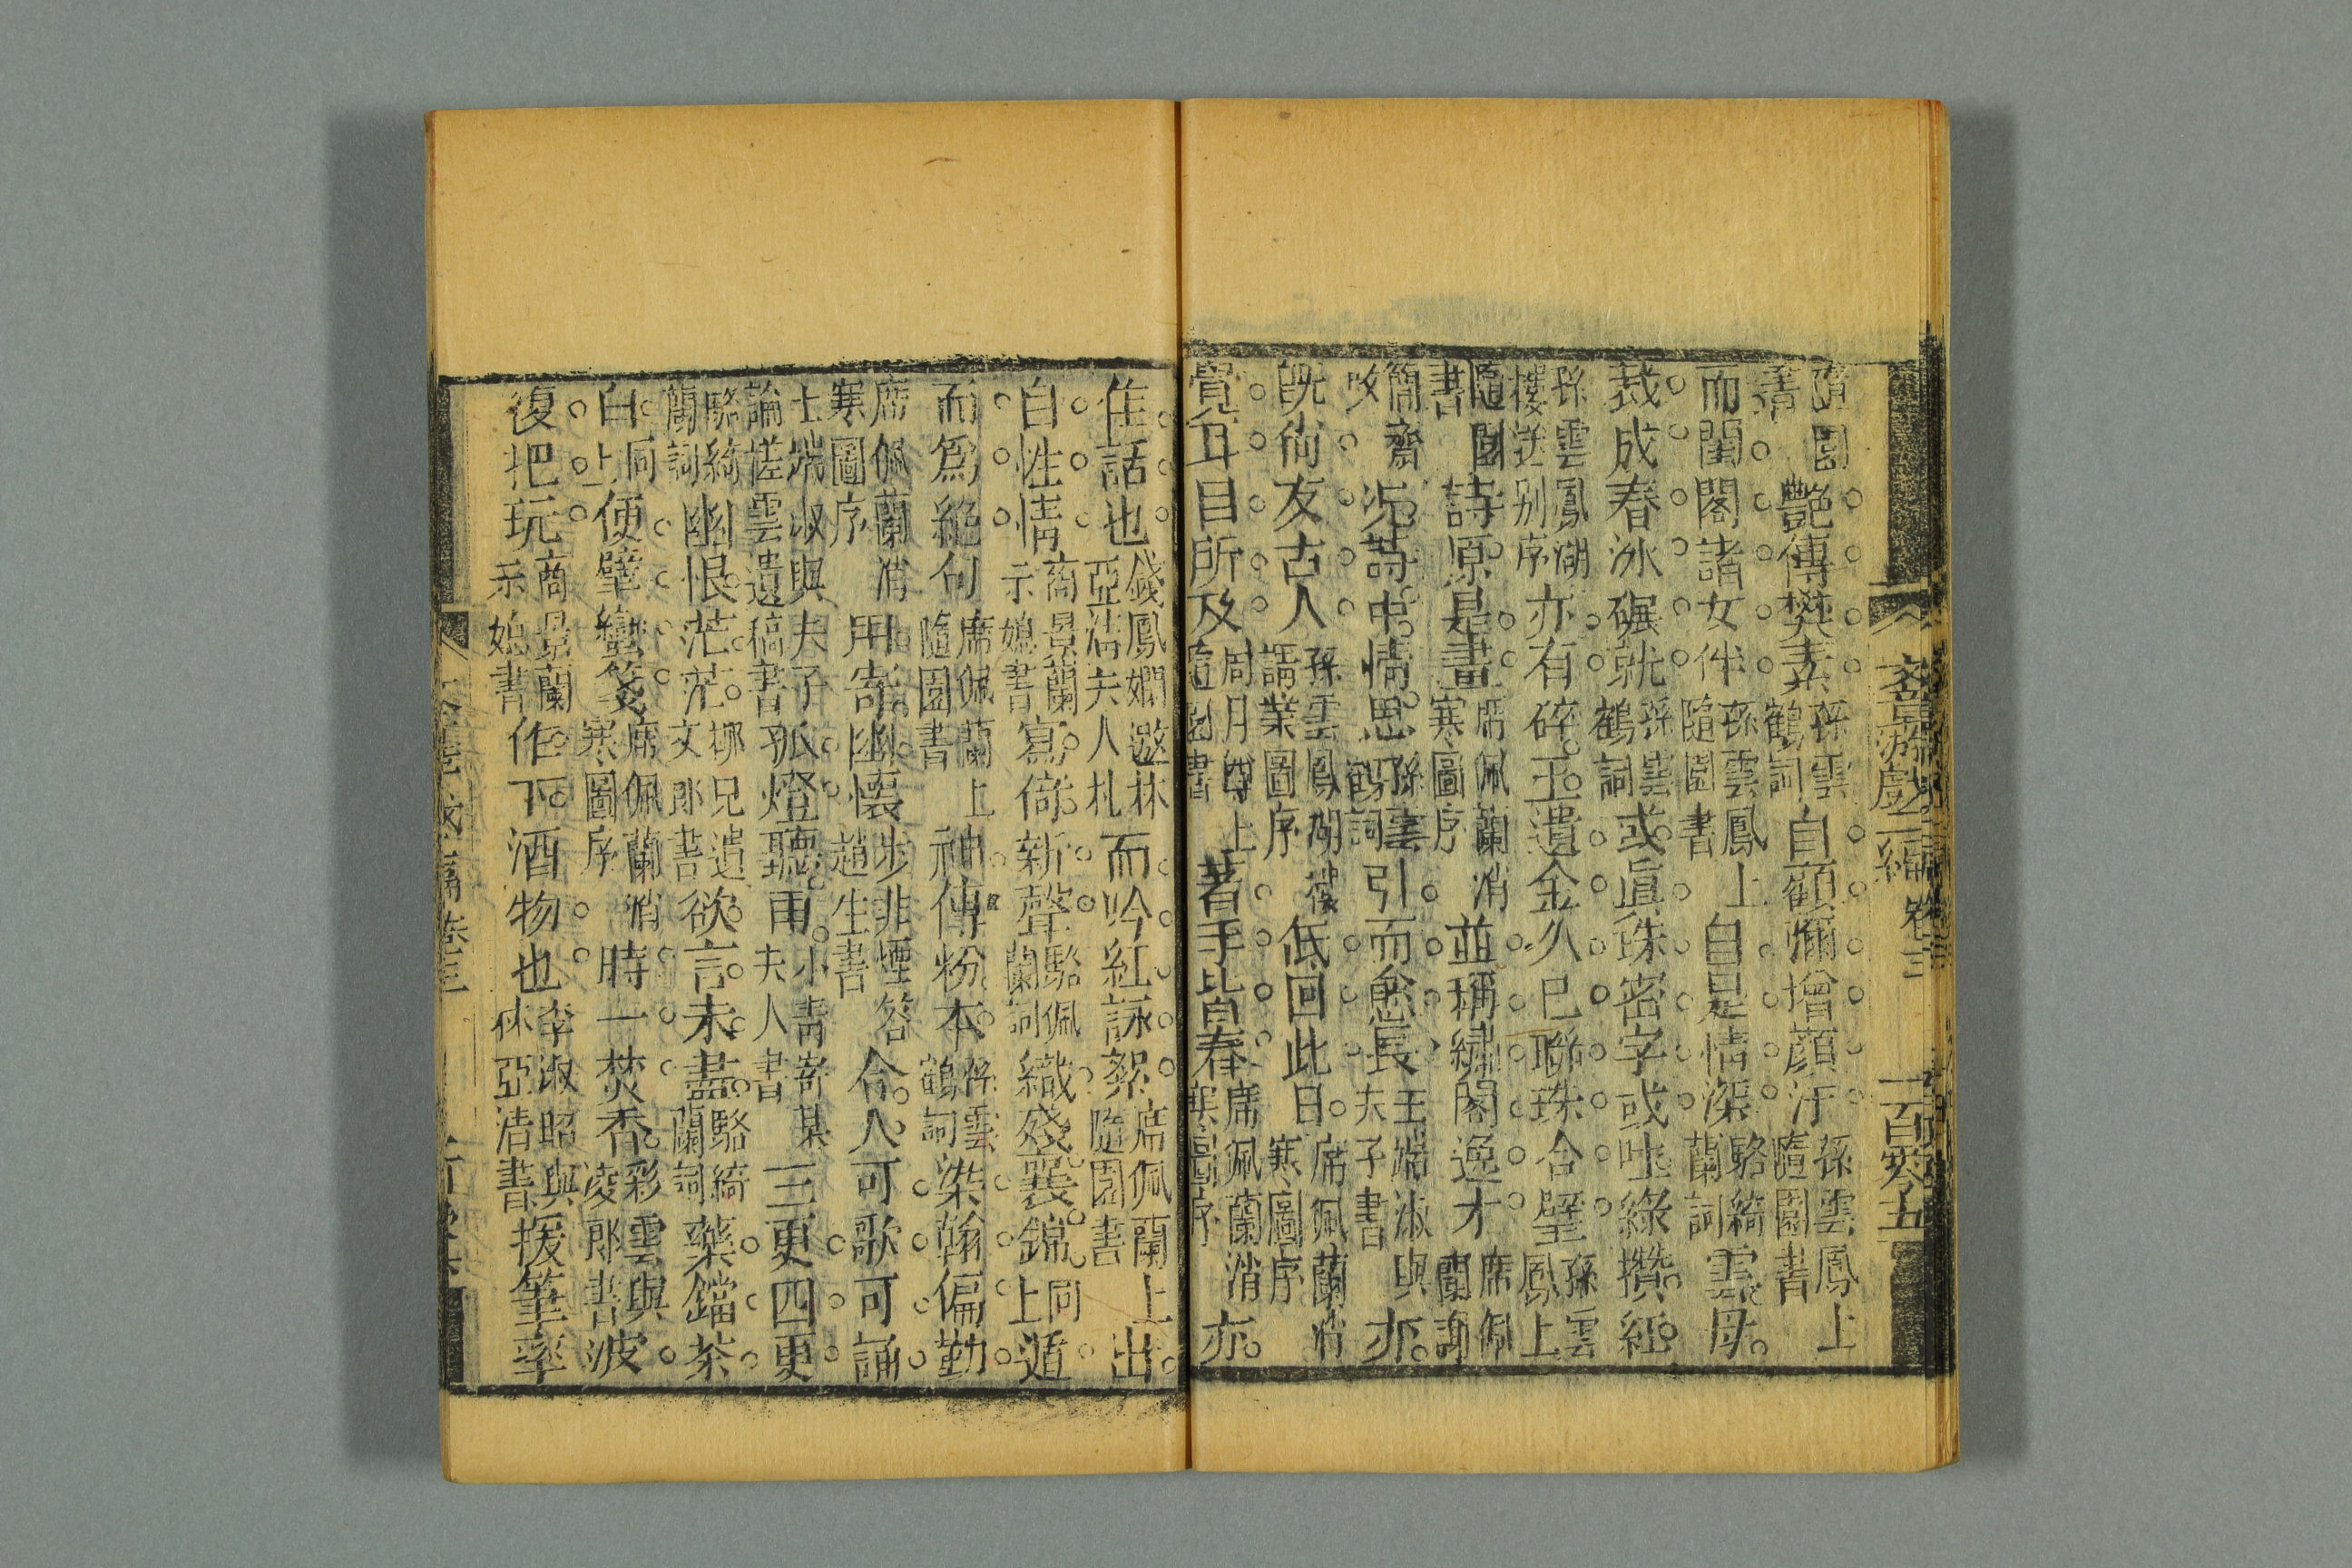 文章游戲二編 卷三
隨園書 艷傳樊素 孫雲鶴詞 自顧彌增顔汗 孫雲鳳上隨園書
而閨閣諸女伴 孫雲鳳上隨園書 自是情深 駱綺蘭詞 雲母
裁成春冰碾就 孫雲鶴詞 或眞珠密字或吐綠攢紅
孫雲鳳湖樓送別序 亦有碎玉遺金久已聯珠合璧 孫雲鳳上
隨園書 詩原是畫 席佩蘭消寒圖序 並稱繡閣逸才 席佩蘭謝
簡齋 況詩中情思 孫雲鶴詞 引而愈長 王端淑與夫子書 亦
既尚友古人 孫雲鳳湖樓請業圖序 低回此日 席佩蘭消寒圖序
覺耳目所及 周月尊上隨園書 著手皆春 席佩蘭消寒圖序 亦
佳話也 錢鳳嫻邀林亞清夫人札 而吟紅詠絮 席佩蘭上隨園書 出
自性情 商景蘭示媳書 寫倚新聲 駱佩蘭詞 織殘錦 同上 遁
而爲絕句 席佩蘭上隨園書 神傳粉本 孫雲鶴詞 染翰偏勤
席佩蘭消寒圖序 用寄幽懷 步非煙答趙生書 令人可歌可誦
士端淑與夫子論槎雲遺稿書 孤燈聽雨 小靑寄某夫人書 三更四更
駱綺蘭詞 幽恨茫茫 兄遺文郎書 欲言未盡 駱綺蘭詞 藥鐺茶
臼 同上 便擘蠻箋 席佩蘭消寒圖序 時一焚香 彩雲與凌郎書 波
復把玩 商景蘭示媳書 作下酒物也 李淑昭與林亞清書 援筆率